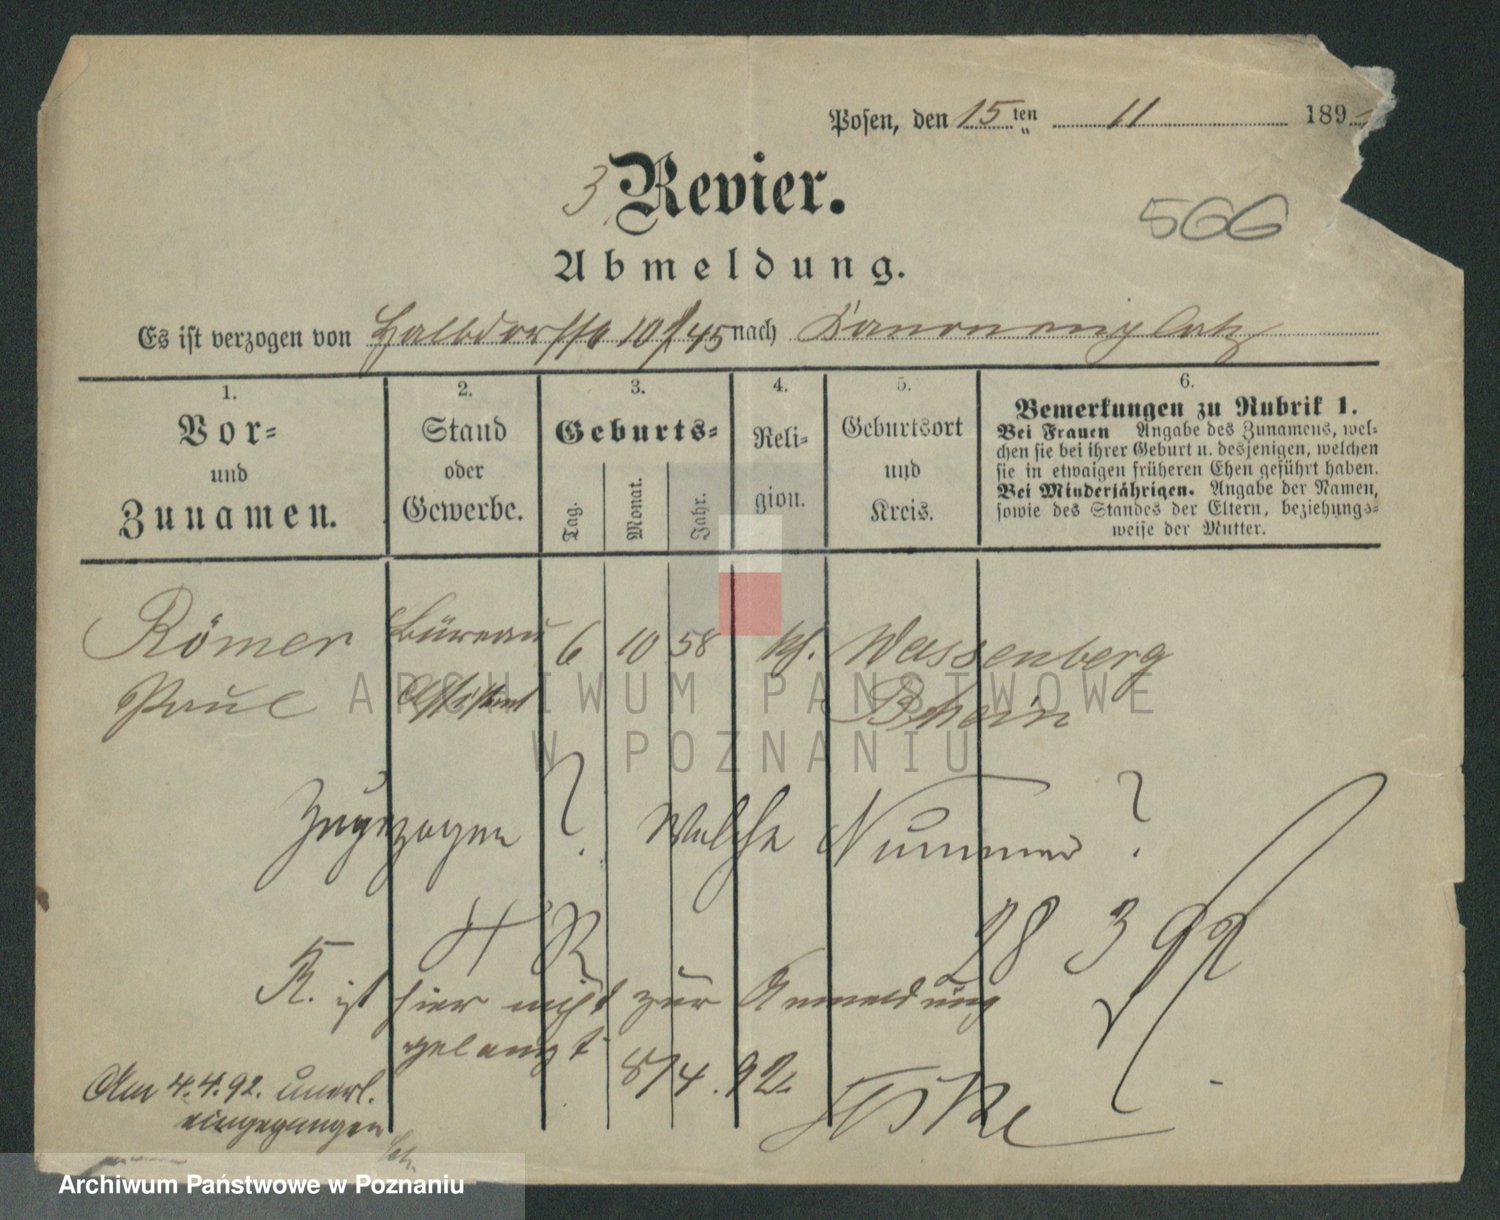 Posen, den 15 ten 11 189
3 Revier.
566
Abmeldung.
Es ist verzogen von Halbdorfstr 10 / 45 nach Kanonenplatz
1.
Vor-
und
Zunamen.
2.
Stand
oder
Gewerbe.
3.
Geburts-
Tag.
Monat.
Jahr.
4.
Reli-
gion.
5.
Geburtsort
und
Kreis.
6.
Bemerkungen zu Rubrik 1.
Bei Frauen Angabe des Zunamens, wel-
chen sie bei ihrer Geburt u. desjenigen, welchen
sie in etwaigen früheren Ehen geführt haben.
Bei Minderjährigen. Angabe der Namen,
sowie des Standes der Eltern, beziehungs-
weise der Mutter.
Römer Büreau 6 10 58 kth. Wassenberg
Paul Assistent Rhein
Zugezogen? Welche Nummer?
28 3 92
R. ist hier nicht zur Anmeldung
gelangt 8/4. 92.
Am 4.4.92. unerl.
eingegangen
ARCHIWUM PAŃSTWOWE
W POZNANIU
Archiwum Państwowe w Poznaniu